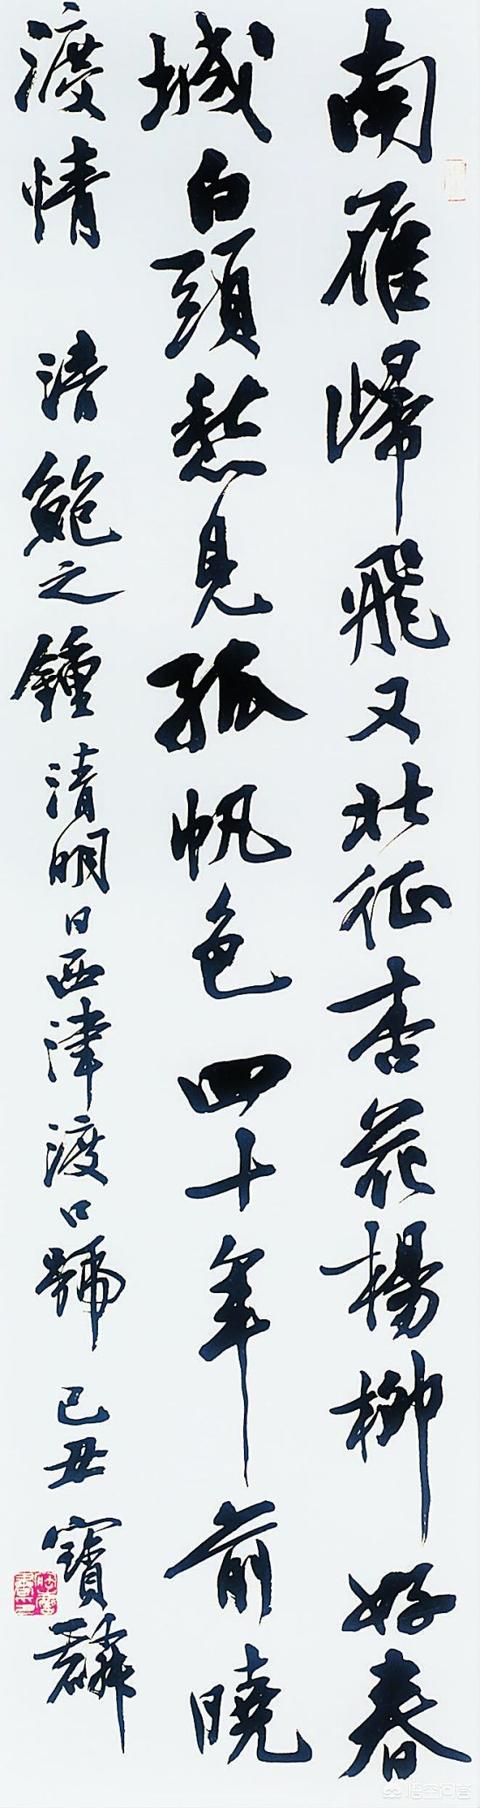 南雁歸飛又北征杏花楊柳好春
城白頭愁見孤帆色四十年前曉
渡情 清鮑之鍾清明日西津渡口號 己丑寶麟
悟空问答